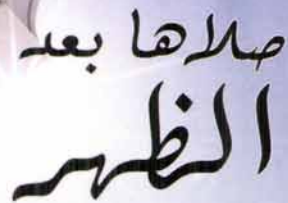 صلاها بعد
الظهر